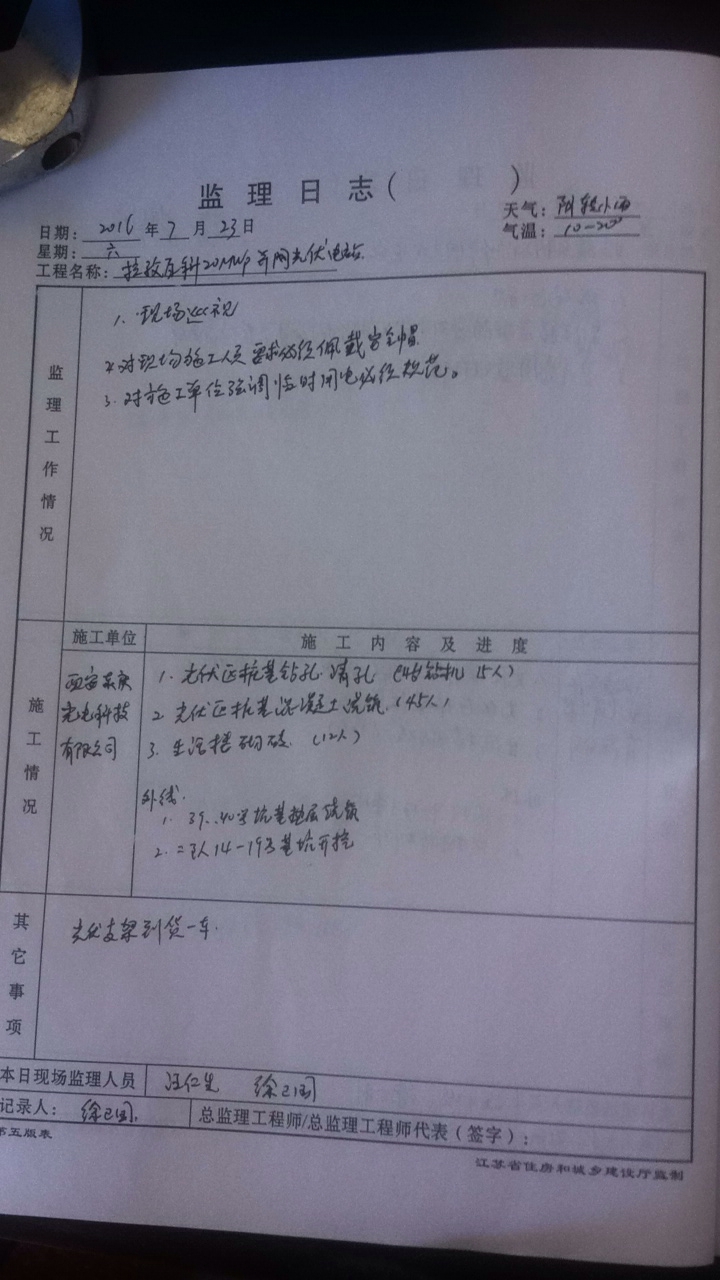 监理日志( )
日期: 2016 年 7 月 23 日
天气: 阴转小雨
星期: 六
气温: 10-20°
工程名称: 20MWp并网光伏电站
监理工作情况
1. 现场巡视
2. 对现场施工人员要求必须佩戴安全帽
3. 对施工单位强调临时用电必须规范。
施工情况
施工单位
施工内容及进度
西安
光电科技
有限公司
1. 光伏区桩基钻孔.清孔 (4台钻机 15人)
2. 光伏区桩基混凝土浇筑.(45人)
3. 生活楼砌砖. (12人)
外线.
1. 39..40号坑基垫层浇筑
2. 二队14-19号基坑开挖
其它事项
光伏支架到货一车.
本日现场监理人员 汪仁生
记录人:
总监理工程师/总监理工程师代表(签字):
第五版表
江苏省住房和城乡建设厅监制